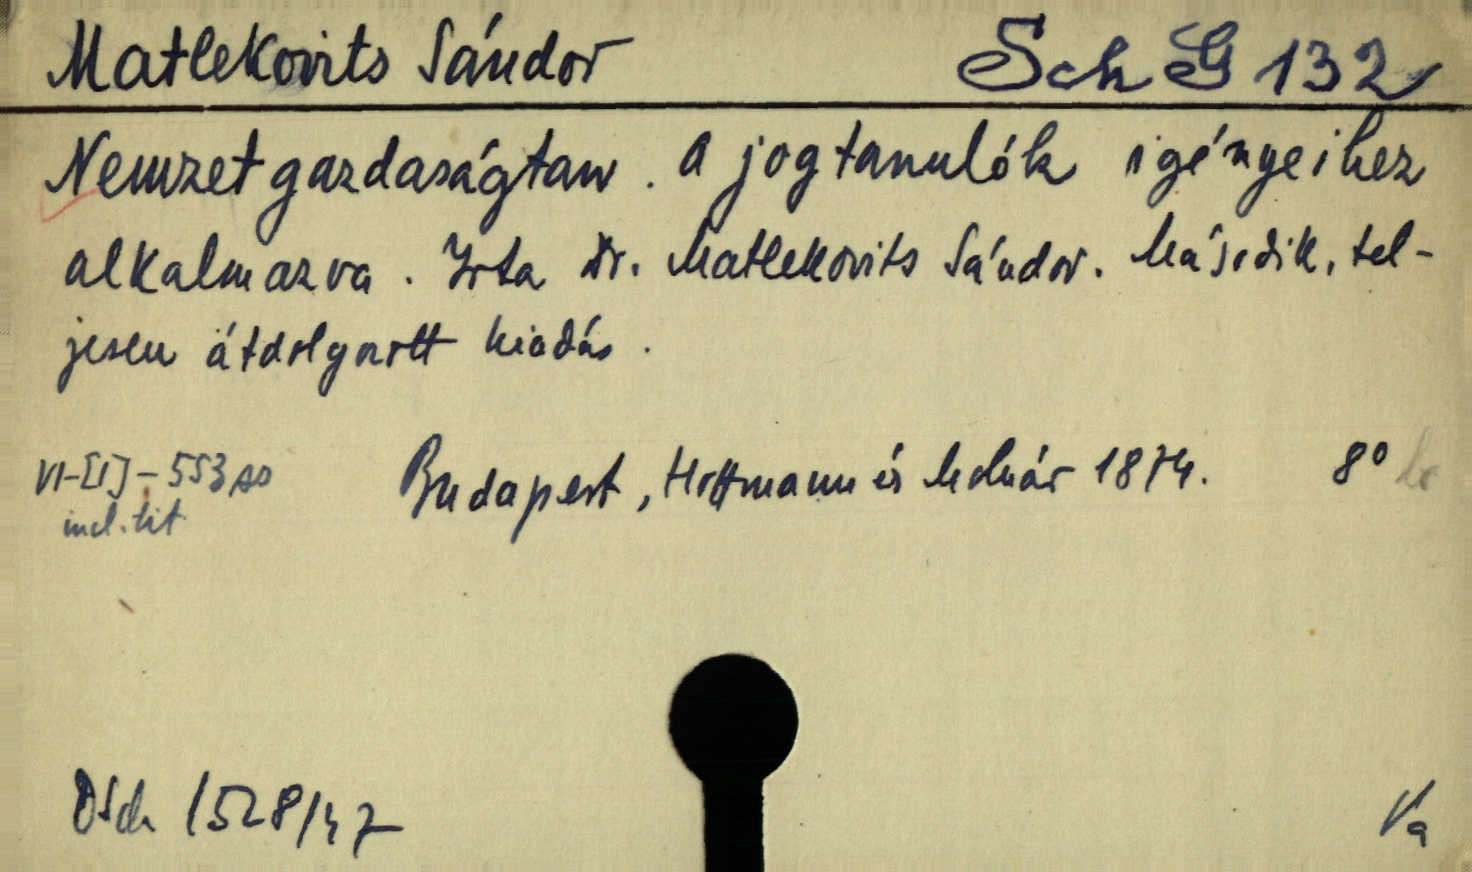 Matlekovits Sándor Sch G 132
Nemzetgazdaságtan. A jogtanulók igényeihez
alkalmazva. Irta Dr. Matlekovits Sándor. Második, tel-
jesen átdolgozott kiadás.
VI-[1]-553
incl. tit Budapest, Hoffmann és Molnár 1874. 8°
DSch 1528/47 Va